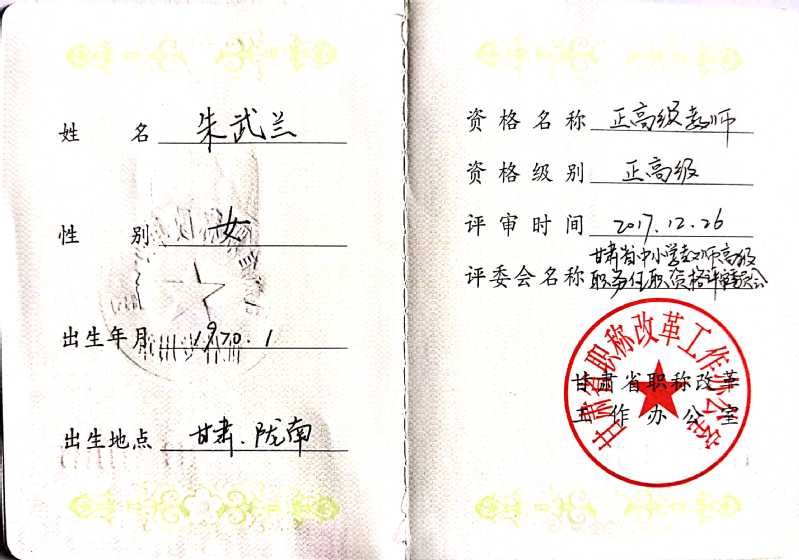 姓 名 朱武兰
性 别 女
出生年月 1970.1
出生地点 甘肃.陇南
资格名称 正高级教师
资格级别 正高级
评审时间 2017.12.26
评委会名称 甘肃省中小学教师高级
职务任职资格评审委员会
甘肃省职称改革工作办公室
甘肃省职称改革
工作办公室